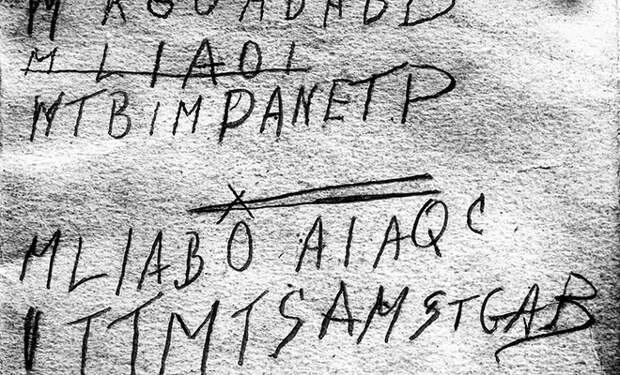 MRGOABABD
MLIAOI
MTBIMPANETP
x
MLIABO AIAQC
ITTMTSAMSTGAB